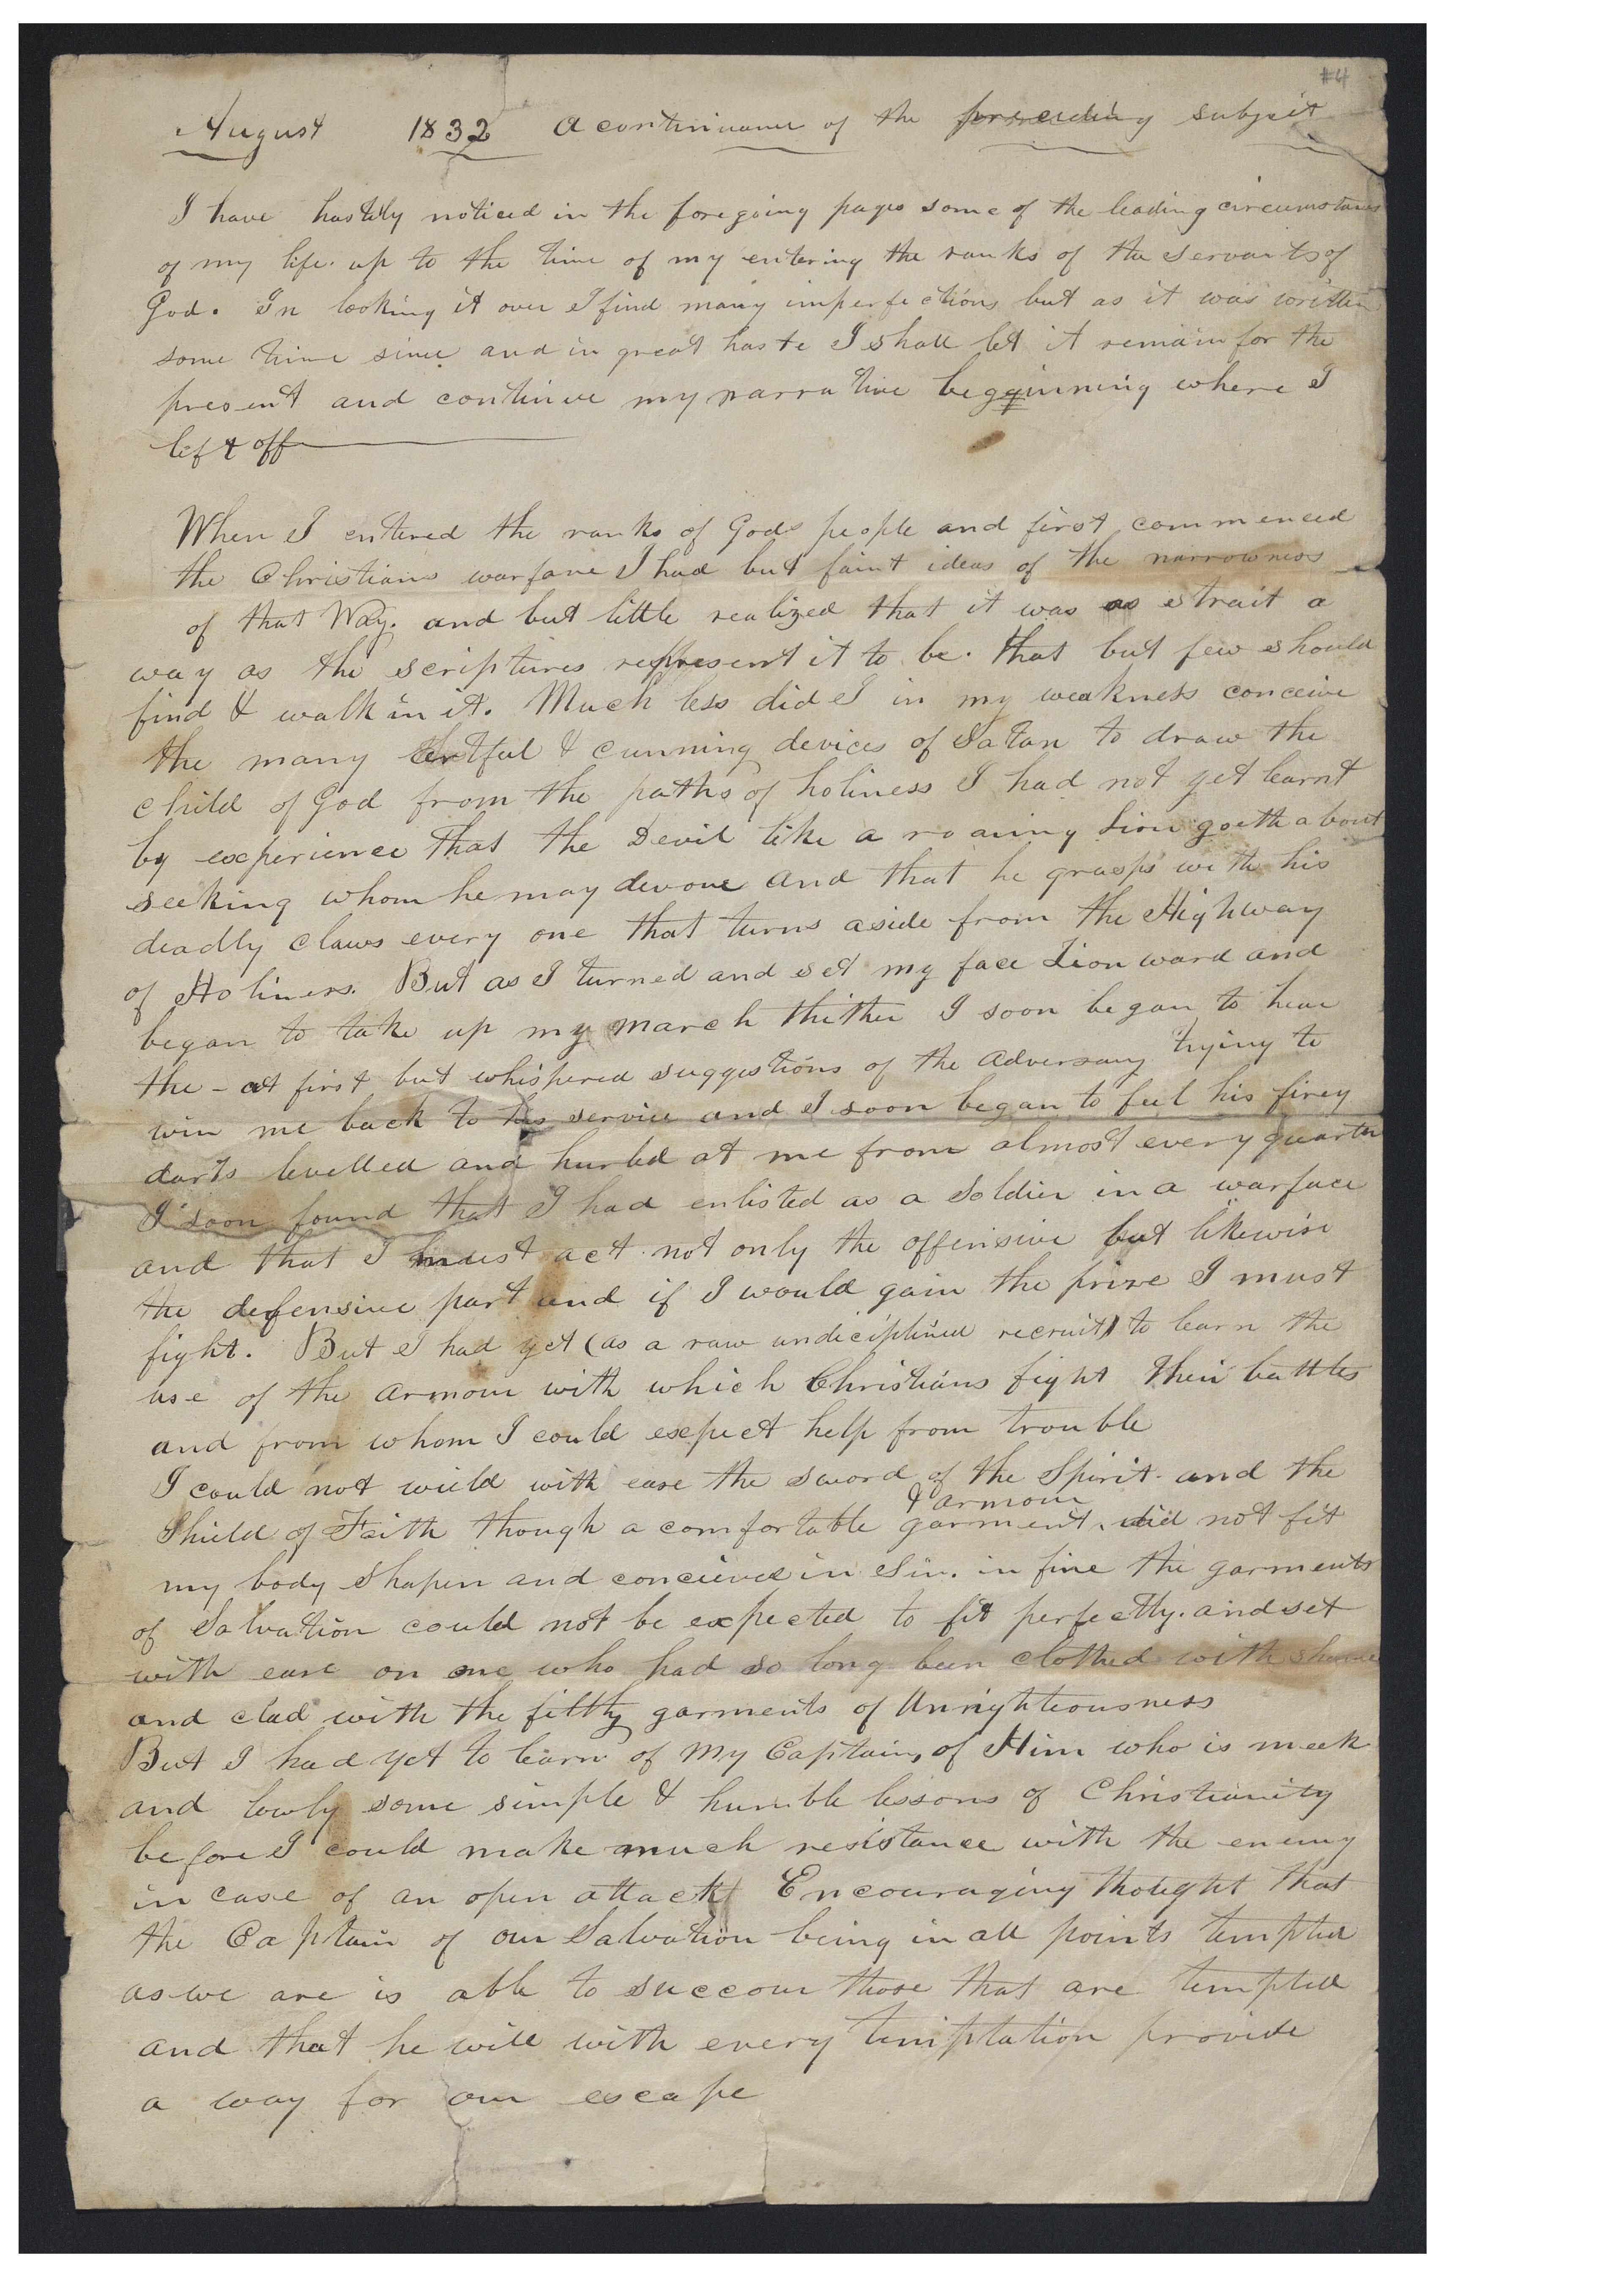 #4
August 1832 A continuance of the preceeding subject
I have hastily noticed in the foregoing pages some of the leading circumstances
of my life. up to the time of my entering the ranks of the servants of
God. In looking it over I find many imperfections but as it was written
some time since and in great haste I shall let it remain for the
present and continue my narrative begginning where I
left off
When I entered the ranks of Gods people and first commenced
the Christians warfare I had but faint ideas of the narrowness
of that Way. and but little realized that it was as strait a
way as the scriptures represent it to be. that but few should
find & walk in it. Much less did I in my weakness conceive
the many artful & cunning devices of Satan to draw the
child of God from the paths of holiness I had not yet learnt
by experience that the Devil like a roaring Lion goeth about
seeking whom he may devour and that he grasps with his
deadly claws every one that turns aside from the Highway
of Holiness. But as I turned and set my face Zion ward and
began to take up my march thither I soon began to hear
the - at first but whispered suggestions of the Adversary trying to
win me back to his service and I soon began to feel his firey
darts levelled and hurled at me from almost every quarter
I soon found that I had enlisted as a Soldier in a warface
and that I must act not only the offensive but likewise
the defensive part and if I would gain the prize I must
fight. But I had yet (as a raw undiciplined recruit) to learn the
use of the armour with which Christians fight their battles
and from whom I could expect help from trouble
I could not wield with ease the sword of the Spirit. and the
& armour
Shield of Faith though a comfortable garment, did not fit
my body shapen and concieved in Sin. in fine the garments
of Salvation could not be expected to fit perfectly. and set
with ease on one who had so long been clothed with shame
and clad with the filthy garments of Unrighteousness
But I had yet to learn of My Captain, of Him who is meek
and lowly some simple & humble lessons of Christianity
before I could make much resistance with the enemy
in case of an open attack Encouraging thought that
the Captain of our Salvation being in all points tempted
as we are is able to succour those that are tempted
and that he will with every temptation provide
a way for our escape